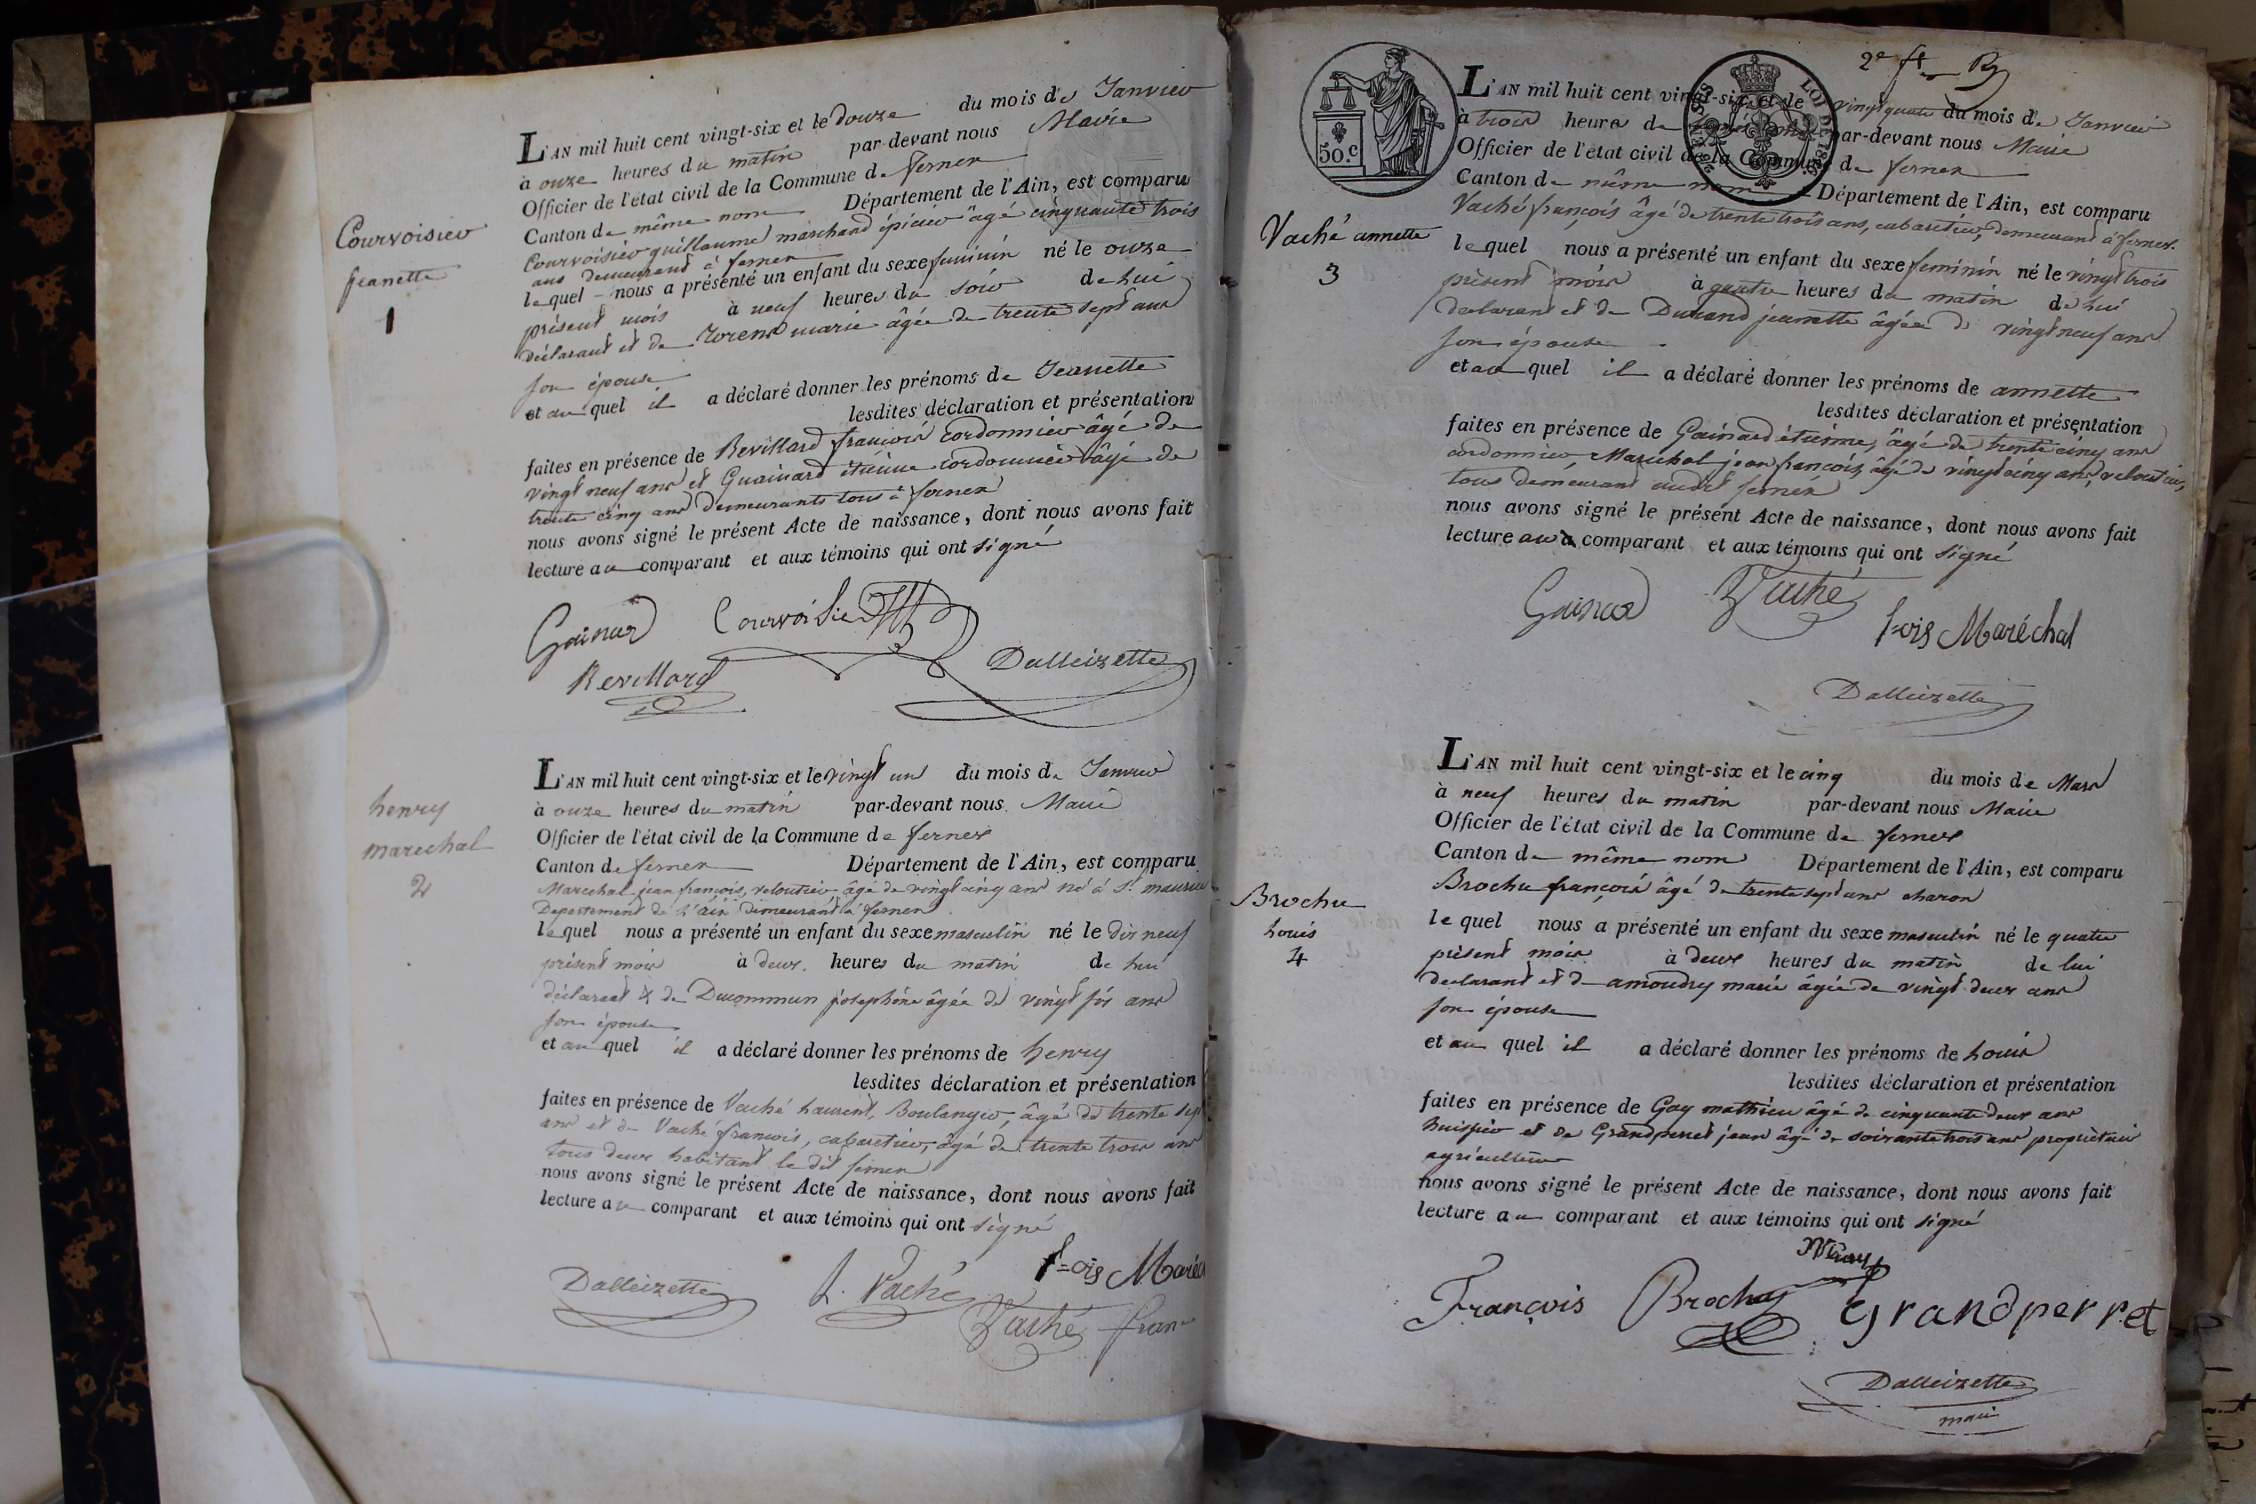 Courvoisier
Jeanette
1
L'AN mil huit cent vingt-six et le douze du mois de Janvier
à onze heures du matin par-devant nous Maire
Officier de l'état civil de la Commune de fernex
Canton de même nom Département de l'Ain, est comparu
Courvoisier guillaume marchand épicier âgé cinquante trois
ans demeurant à fernex
lequel nous a présenté un enfant du sexe feminin né le onze
présent mois à neuf heures du soir de lui
déclarant et de marie âgée de trente sept ans
son épouse
et auquel il a déclaré donner les prénoms de Jeanette
lesdites déclaration et présentation
faites en présence de Revillard françois cordonnier âgé de
vingt neuf ans et Guainard étienne cordonnier âgé de
trente cinq ans demeurants tous à fernex
nous avons signé le présent Acte de naissance, dont nous avons fait
lecture au comparant et aux témoins qui ont signé
Gainard Courvoisier
Revillard Dalleizette
henry
marechal
2
L'AN mil huit cent vingt-six et le vingt un du mois de Janvier
à onze heures du matin par-devant nous Maire
Officier de l'état civil de la Commune de fernex
Canton de fernex Département de l'Ain, est comparu
Marechal jean françois, veloutier âgé de vingt cinq ans né à St maurice
Departement de l'ain demeurant à fernex
lequel nous a présenté un enfant du sexe masculin né le dix neuf
présent mois à deux heures du matin de lui
déclarant & de Ducommun josephine âgée de vingt six ans
son épouse
et auquel il a déclaré donner les prénoms de henry
lesdites déclaration et présentation
faites en présence de Vaché Laurent, Boulanger, âgé de trente sept
ans et de Vaché françois, cabaretier, âgé de trente trois ans
tous deux habitant le dit fernex
nous avons signé le présent Acte de naissance, dont nous avons fait
lecture au comparant et aux témoins qui ont signé
Dalleizette L. Vaché f=ois Maréc
Vaché fran
2e ft
50.C
LOI DE 1816
L'AN mil huit cent vingt-six et le vingt quatre du mois de Janvier
à trois heures de par-devant nous Maire
Officier de l'état civil de la Commune de fernex
Canton de même nom Département de l'Ain, est comparu
Vaché françois âgé de trente trois ans, cabaretier, demeurant à fernex.
Vaché annette
3
lequel nous a présenté un enfant du sexe feminin né le vingt trois
présent mois à quatre heures du matin de lui
declarant et de Durand jeanette âgée de vingt neuf ans
son épouse
et auquel il a déclaré donner les prénoms de annette
lesdites déclaration et présentation
faites en présence de Gainard étienne, âgé de trente cinq ans
cordonnier, Maréchal jean françois, âgé de vingt cinq ans, veloutier,
tous demeurant audit fernex
nous avons signé le présent Acte de naissance, dont nous avons fait
lecture au comparant et aux témoins qui ont signé
Gainard Vaché
f=ois Maréchal
Dalleizette
L'AN mil huit cent vingt-six et le cinq du mois de Mars
à neuf heures du matin par-devant nous Maire
Officier de l'état civil de la Commune de fernex
Canton de même nom Département de l'Ain, est comparu
Brochu françois âgé de trente sept ans charon
Brochu
Louis
4
lequel nous a présenté un enfant du sexe masculin né le quatre
présent mois à deux heures du matin de lui
declarant et de amoudry marie âgée de vingt deux ans
son épouse
et auquel il a déclaré donner les prénoms de Louis
lesdites déclaration et présentation
faites en présence de Gay mathieu âgé de cinquante deux ans
huissier et de Grandperret jean âgé de soixante trois ans propriétaire
agriculteur
nous avons signé le présent Acte de naissance, dont nous avons fait
lecture au comparant et aux témoins qui ont signé
François Brochu Grandperret
Dalleizette
maire